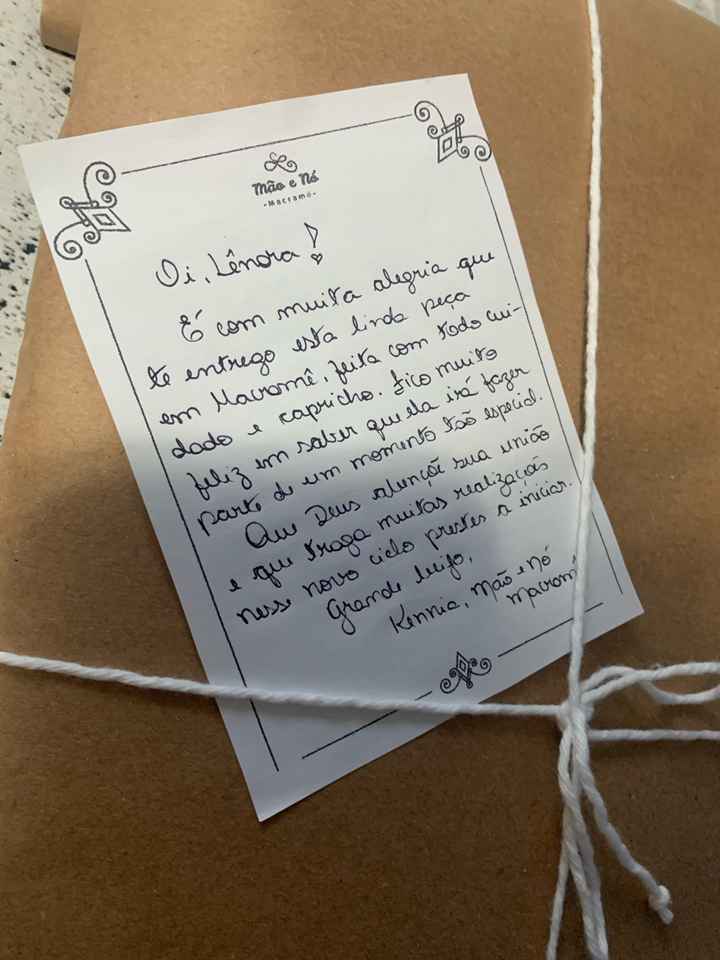 Mão e Nó
-Macramê-
Oi, Lênora!
É com muita alegria que
te entrego esta linda peça
em Macramê, feita com todo cui-
dado e capricho. Fico muito
feliz em saber que ela irá fazer
parte de um momento tão especial.
Que Deus abençõe sua união
e que traga muitas realizações
nesse novo ciclo prestes a iniciar.
Grande beijo,
Kennia, Mão e Nó
Macram